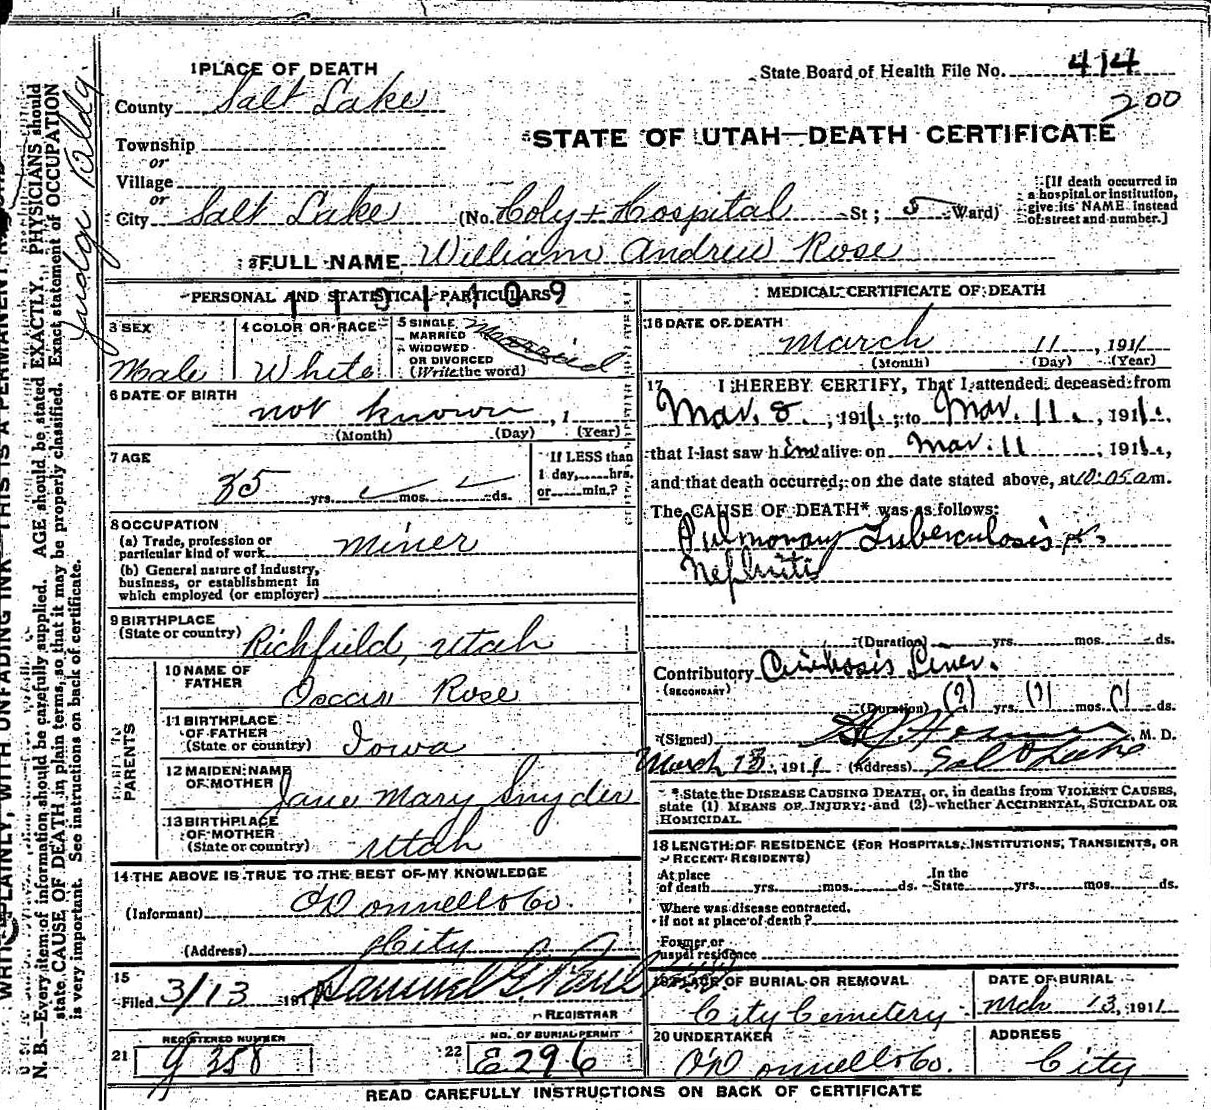 1 PLACE OF DEATH
State Board of Health File No. 414
County Salt Lake
200
STATE OF UTAH—DEATH CERTIFICATE
Township
or
Village
or
City Salt Lake (No. Holy + Hospital St; 5 Ward)
[If death occurred in
a hospital or institution,
give its NAME instead
of street and number.]
2 FULL NAME William Andrew Rose
PERSONAL AND STATISTICAL PARTICULARS
3 SEX
Male
4 COLOR OR RACE
White
5 SINGLE
MARRIED
WIDOWED
OR DIVORCED
(Write the word)
Married
6 DATE OF BIRTH
not known, 1
(Month) (Day) (Year)
7 AGE
35 yrs. mos. ds.
If LESS than
1 day, hrs.
or min.?
8 OCCUPATION
(a) Trade, profession or
particular kind of work Miner
(b) General nature of industry,
business, or establishment in
which employed (or employer)
9 BIRTHPLACE
(State or country) Richfield, Utah
PARENTS
10 NAME OF
FATHER
Oscar Rose
11 BIRTHPLACE
OF FATHER
(State or country) Iowa
12 MAIDEN NAME
OF MOTHER
Jane Mary Snyder
13 BIRTHPLACE
OF MOTHER
(State or country) Utah
14 THE ABOVE IS TRUE TO THE BEST OF MY KNOWLEDGE
(Informant) O'Donnell & Co.
(Address) City
15
Filed 3/13 191 Samuel G. Paul
REGISTRAR
REGISTERED NUMBER
21 358
NO. OF BURIAL PERMIT
22 E296
MEDICAL CERTIFICATE OF DEATH
16 DATE OF DEATH
March 11, 1911
(Month) (Day) (Year)
17 I HEREBY CERTIFY, That I attended deceased from
Mar. 8, 1911, to Mar. 11, 1911,
that I last saw him alive on Mar. 11, 1911,
and that death occurred, on the date stated above, at 10:05 a m.
The CAUSE OF DEATH* was as follows:
Pulmonary Tuberculosis
Nephritis
(Duration) yrs. mos. ds.
Contributory Cirrhosis Liver.
(SECONDARY)
(Duration) (?) yrs. (?) mos. ds.
(Signed) M. D.
March 13, 1911 (Address) Salt Lake
*State the DISEASE CAUSING DEATH, or, in deaths from VIOLENT CAUSES,
state (1) MEANS OF INJURY; and (2) whether ACCIDENTAL, SUICIDAL OR
HOMICIDAL.
18 LENGTH OF RESIDENCE (FOR HOSPITALS, INSTITUTIONS, TRANSIENTS, OR
RECENT RESIDENTS)
At place
of death yrs. mos. ds. In the
State yrs. mos. ds.
Where was disease contracted,
if not at place of death?
Former or
usual residence
19 PLACE OF BURIAL OR REMOVAL
City Cemetery
DATE OF BURIAL
Mch 13, 1911
20 UNDERTAKER
O'Donnell & Co.
ADDRESS
City
READ CAREFULLY INSTRUCTIONS ON BACK OF CERTIFICATE
WRITE PLAINLY, WITH UNFADING INK—THIS IS A PERMANENT
N. B.—Every item of information should be carefully supplied. AGE should be stated EXACTLY. PHYSICIANS should
state CAUSE OF DEATH in plain terms, so that it may be properly classified. Exact statement of OCCUPATION
is very important. See instructions on back of certificate.
Judge Bldg.